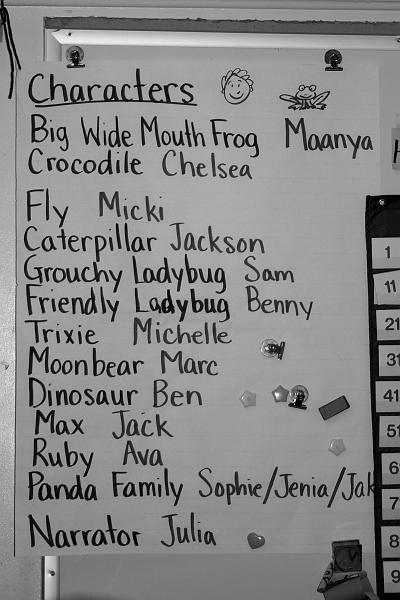 Characters
Big Wide Mouth Frog Maanya
Crocodile Chelsea
Fly Micki
Caterpillar Jackson
Grouchy Ladybug Sam
Friendly Ladybug Benny
Trixie Michelle
Moonbear Marc
Dinosaur Ben
Max Jack
Ruby Ava
Panda Family Sophie/Jenia/Jak
Narrator Julia
1
11
21
31
41
51
6
7
8
9